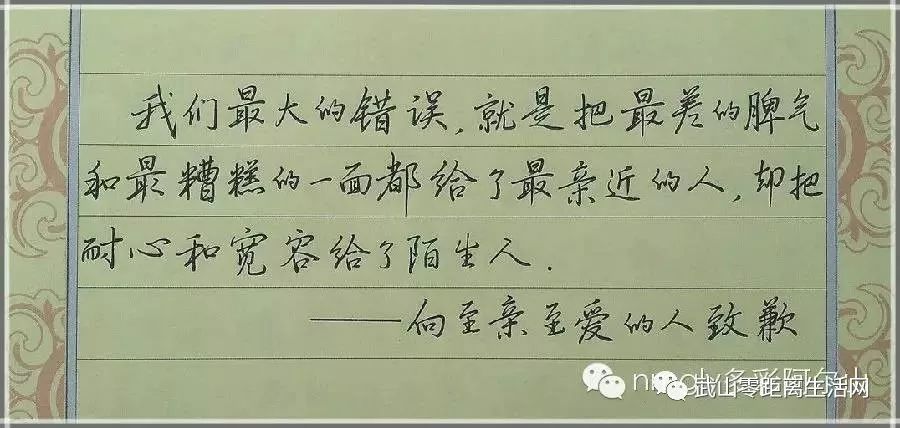 我们最大的错误,就是把最差的脾气
和最糟糕的一面都给了最亲近的人,却把
耐心和宽容给了陌生人.
——向至亲至爱的人致歉
武山零距离生活网